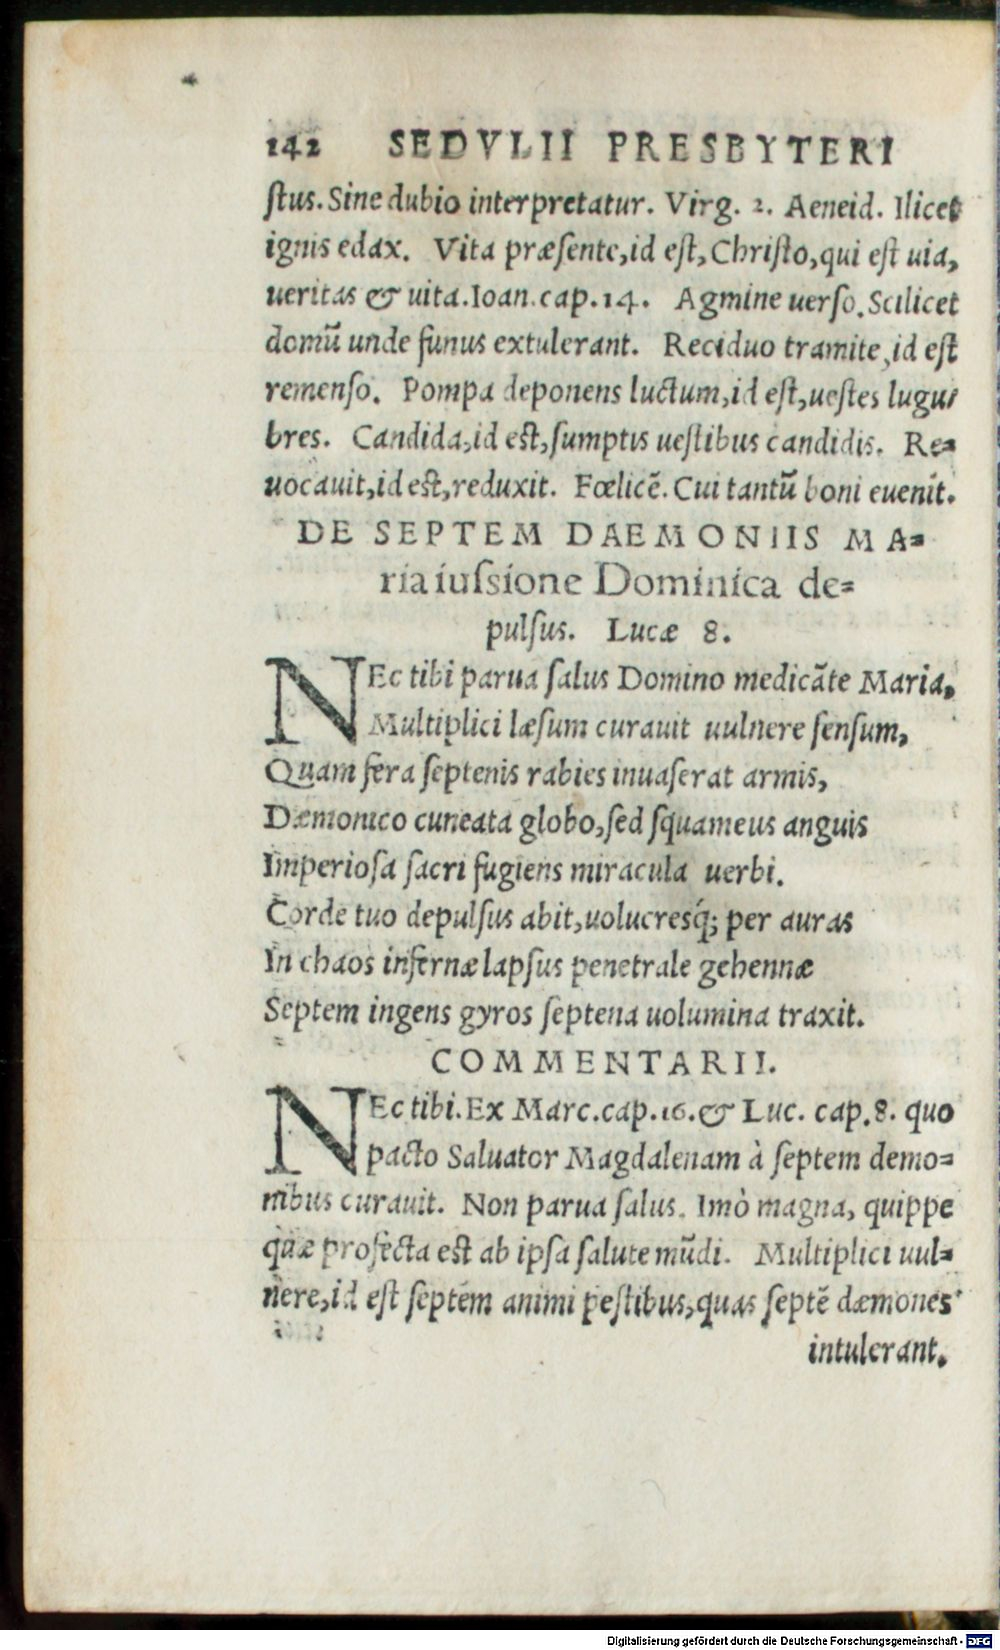 142 SEDVLII PRESBYTERI
ſtus. Sine dubio interpretatur. Virg. 2. Aeneid. Ilicet
ignis edax. Vita præſente, id eſt, Chriſto, qui eſt uia,
ueritas & uita. Ioan. cap. 14. Agmine uerſo. Scilicet
domũ unde funus extulerant. Reciduo tramite, id eſt
remenſo. Pompa deponens luctum, id eſt, ueſtes lugu-
bres. Candida, id eſt, ſumptis ueſtibus candidis. Re-
uocauit, id eſt, reduxit. Fœlicẽ. Cui tantũ boni euenit.
DE SEPTEM DAEMONIIS MA-
ria iuſsione Dominica de-
pulſus. Lucæ 8.
NEc tibi parua ſalus Domino medicãte Maria,
Multiplici læſum curauit uulnere ſenſum,
Quam fera ſeptenis rabies inuaſerat armis,
Dæmonico cuneata globo, ſed ſquameus anguis
Imperioſa ſacri fugiens miracula uerbi.
Corde tuo depulſus abit, uolucresq́; per auras
In chaos infernæ lapſus penetrale gehennæ
Septem ingens gyros ſeptena uolumina traxit.
COMMENTARII.
NEc tibi. Ex Marc. cap. 16. & Luc. cap. 8. quo
pacto Saluator Magdalenam à ſeptem demo-
nibus curauit. Non parua ſalus. Imò magna, quippe
quæ profecta eſt ab ipſa ſalute mũdi. Multiplici uul-
nere, id eſt ſeptem animi peſtibus, quas ſeptẽ dæmones
intulerant.
Digitalisierung gefördert durch die Deutsche Forschungsgemeinschaft - DFG